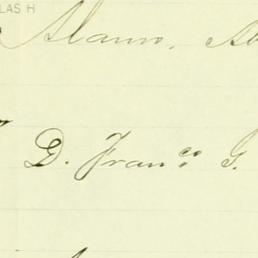 LAS H
Alamo,
D. Fran.co G.